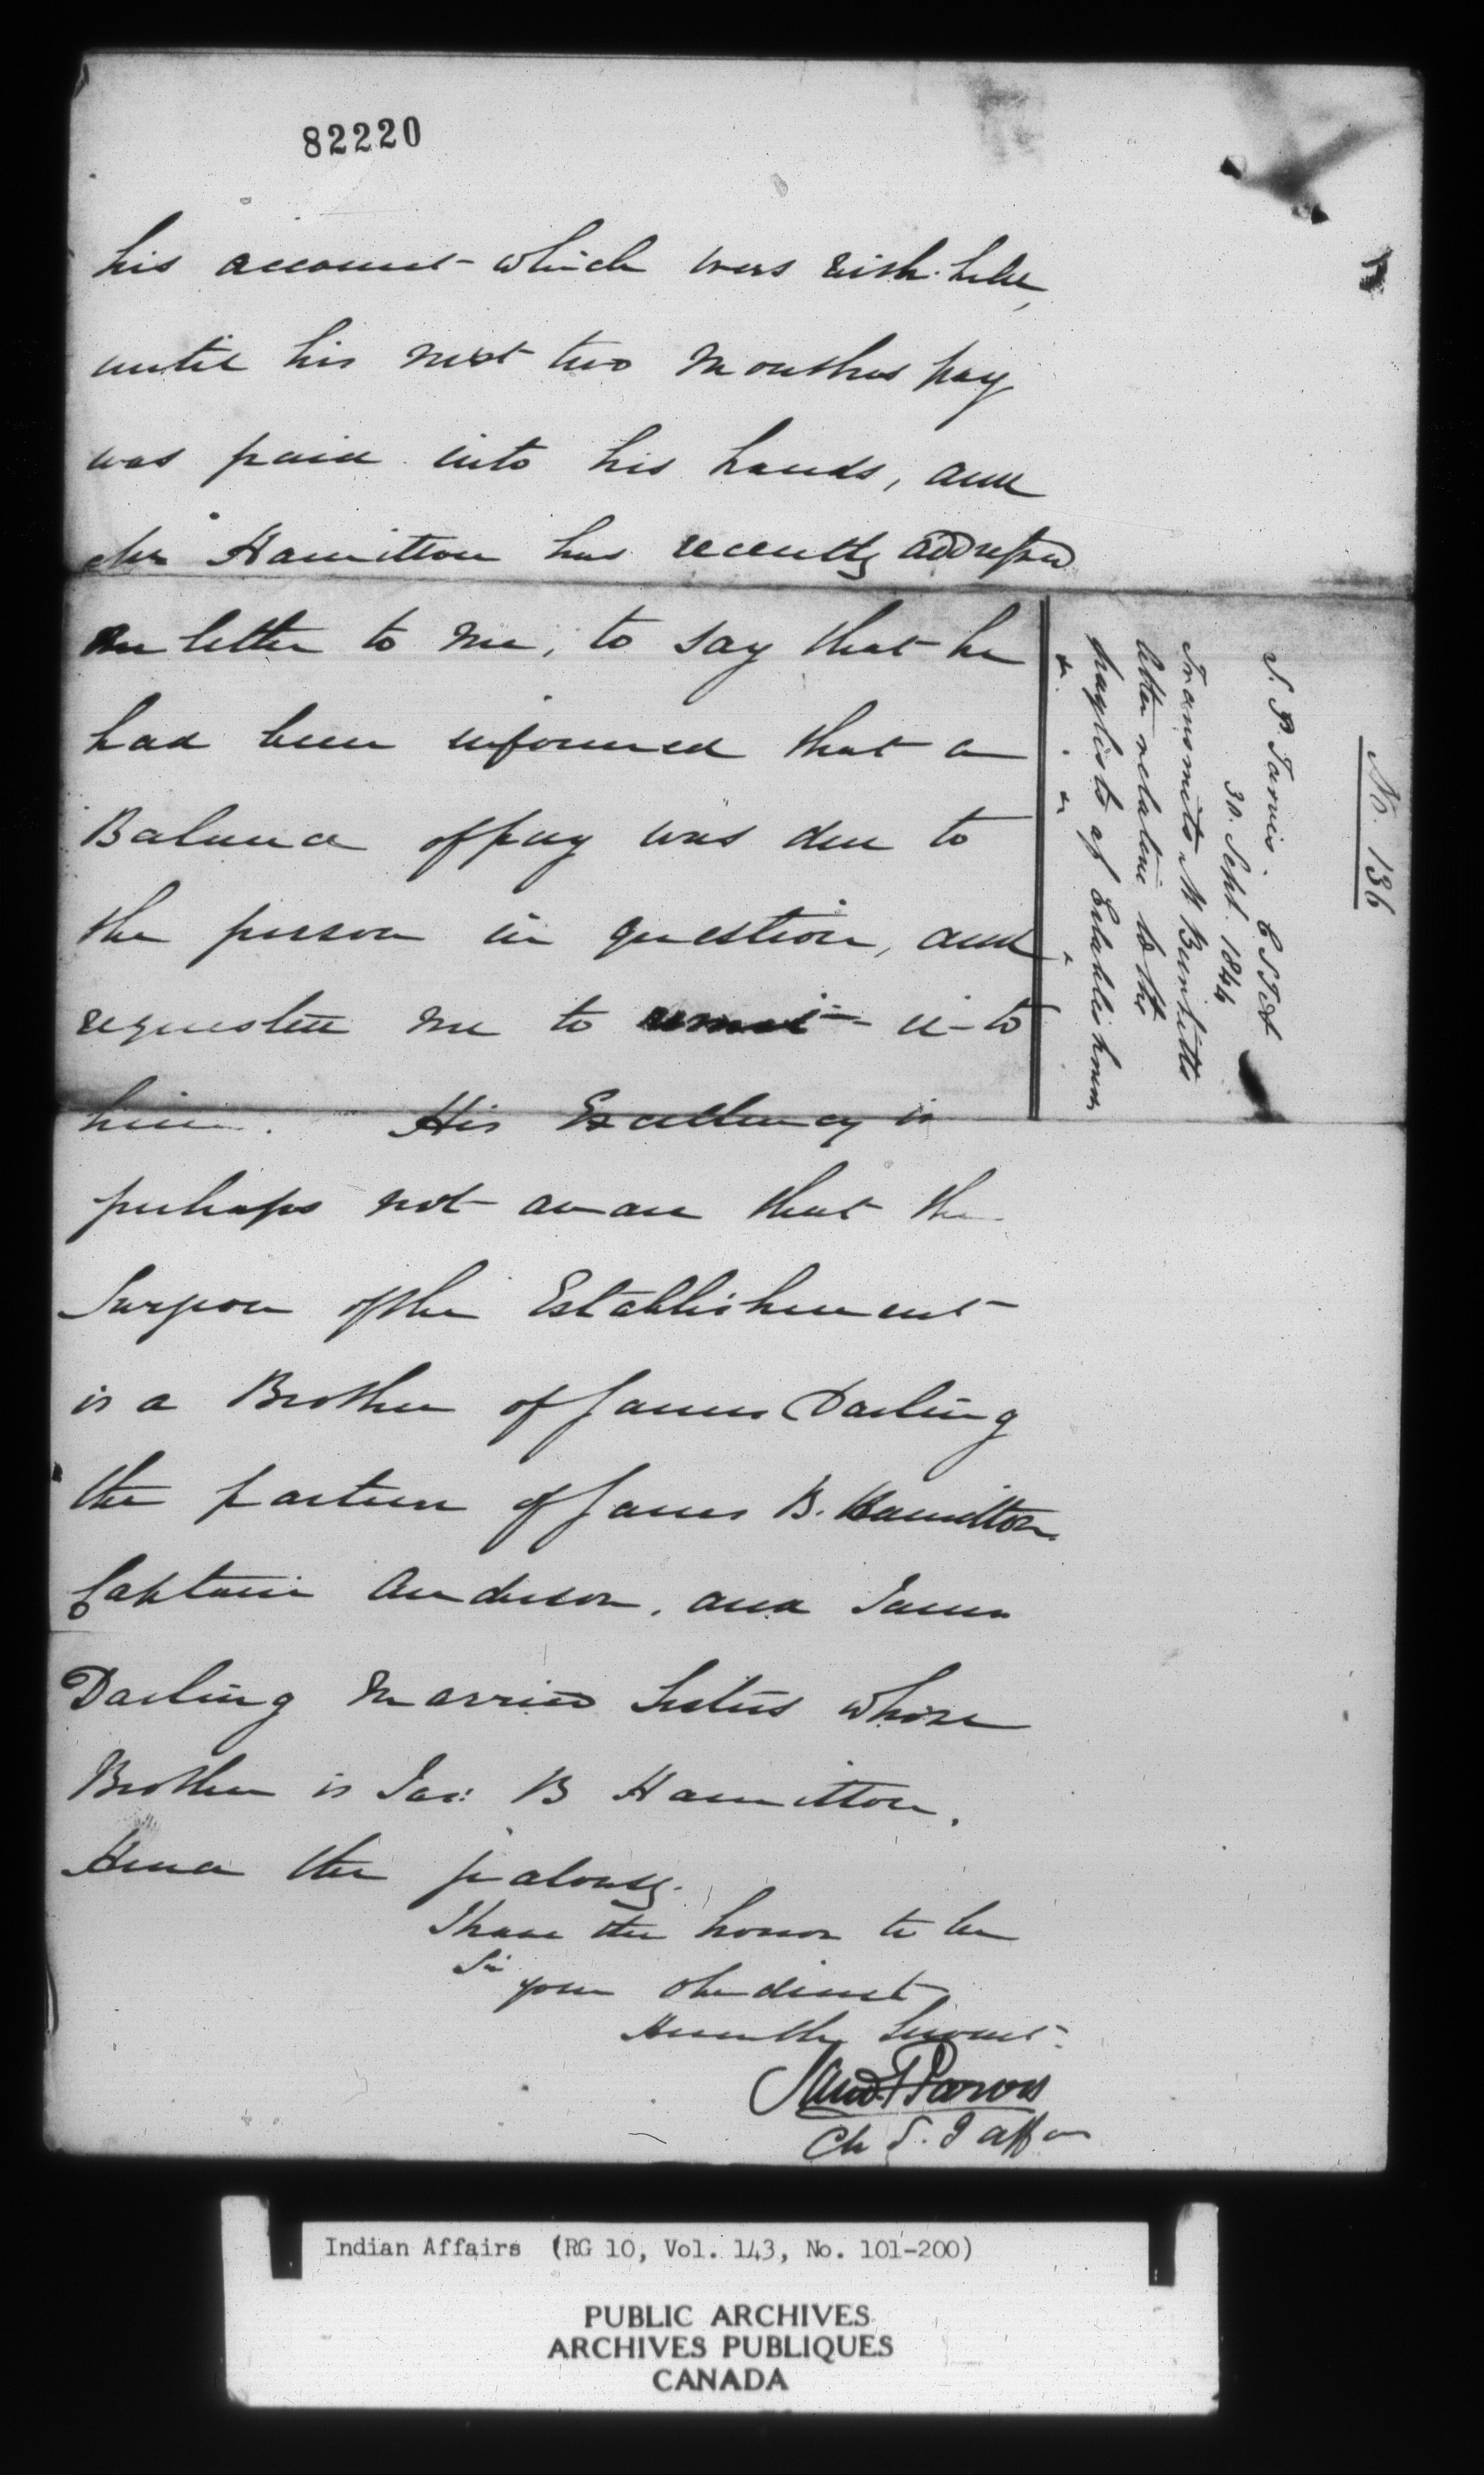 82220
his account which was with-held,
until his next two months pay
was paid into his hands, and
Mr Hamilton has recently addressed
letter to me, to say that he
had been informed that a
Balance of pay was due to
the person in question, and
requested me to remit it to
him. His Excellency is
perhaps not aware that the
Surgeon of the Establishment
is a Brother of James Darling
the partner of James B. Hamilton
Captain Anderson, and James
Darling married Sisters whose
Brother is Jas: B Hamilton.
Hence the jealousy.
I have the honor to be
Sir
your obedient
Humble Servant
Saml P Jarvis
Ch S. I affrs
No. 136
S. P. Jarvis C S I A
30. Sept. 1844
Transmits Mr
letter relative to the
paylists of Establishment
&c. &c.
Indian Affairs (RG 10, Vol. 143, No. 101-200)
PUBLIC ARCHIVES
ARCHIVES PUBLIQUES
CANADA